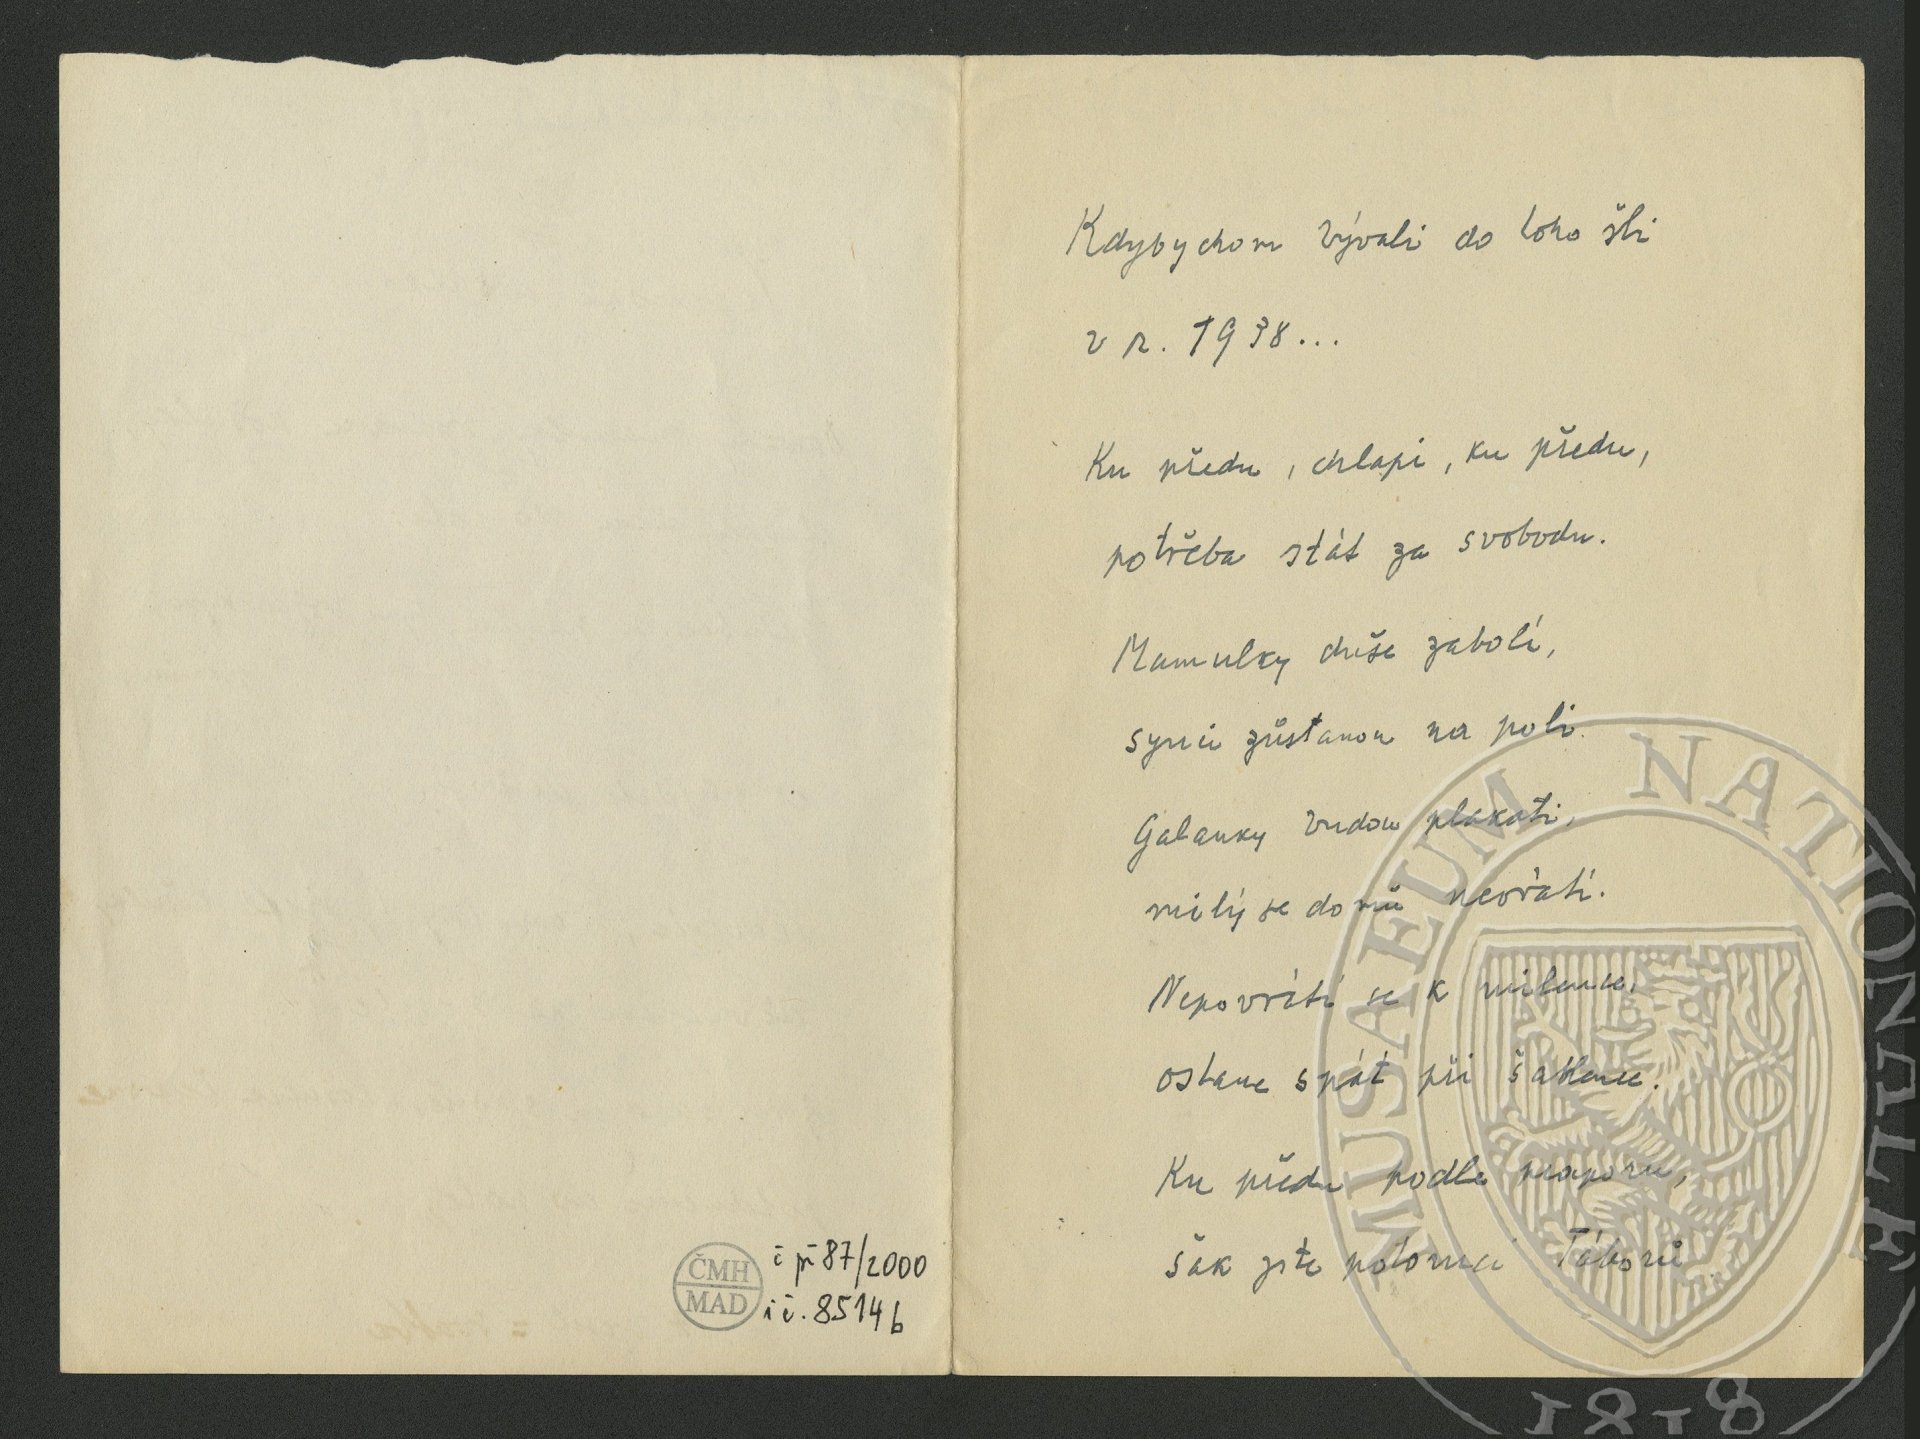 Kdybychom bývali do toho šli
v r. 1938...
Ku předu, chlapi, ku předu,
potřeba stát za svobodu.
Mamulky duše zabolí,
synci zůstanou na poli.
Galanky budou plakati,
milý se domů nevrátí.
Nepovrátí se k milence,
ostane spát při šablence.
Ku předu podle praporu,
šak jste potomci Táborů
ČMH
MAD
č př 87/2000
i č. 8514 b
MUSAEUM NATIONALE
1818